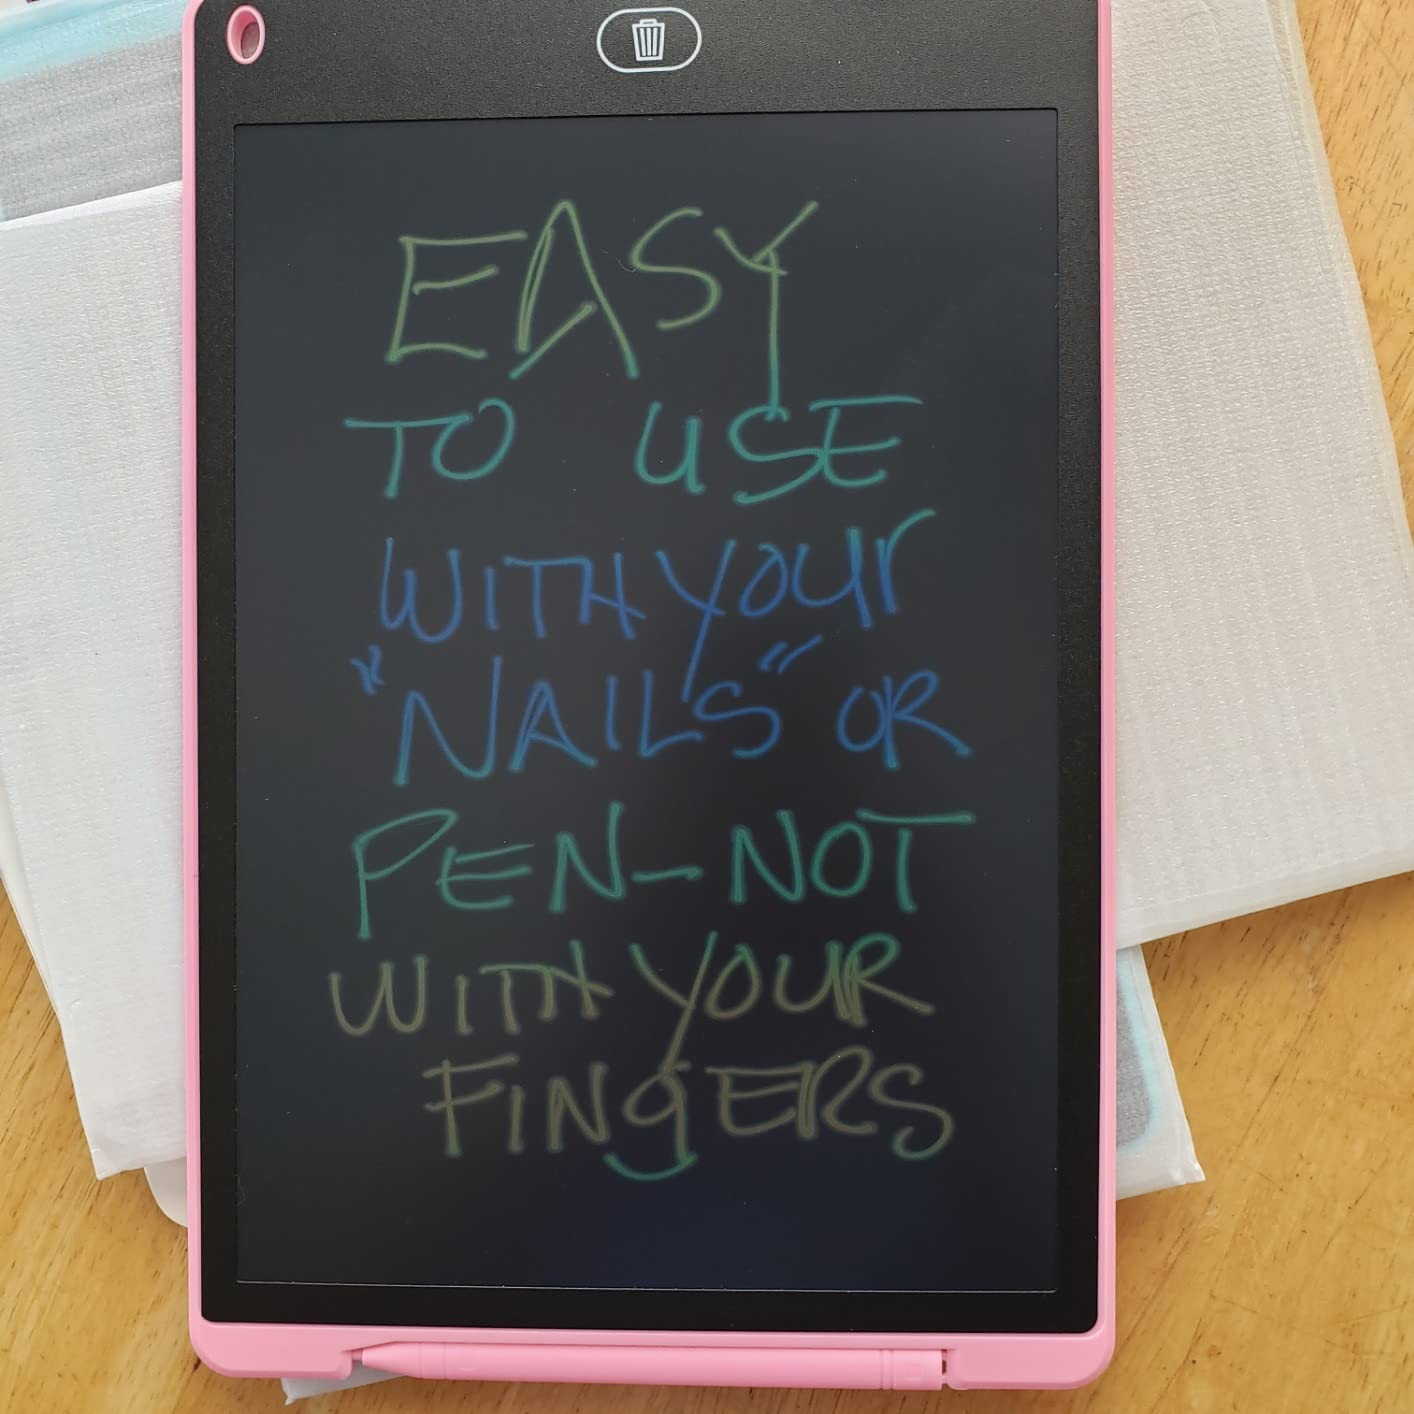 EASY
TO USE
WITH YOUr
"NAILS" OR
PEN-NOT
WITH YOUR
FINgERS